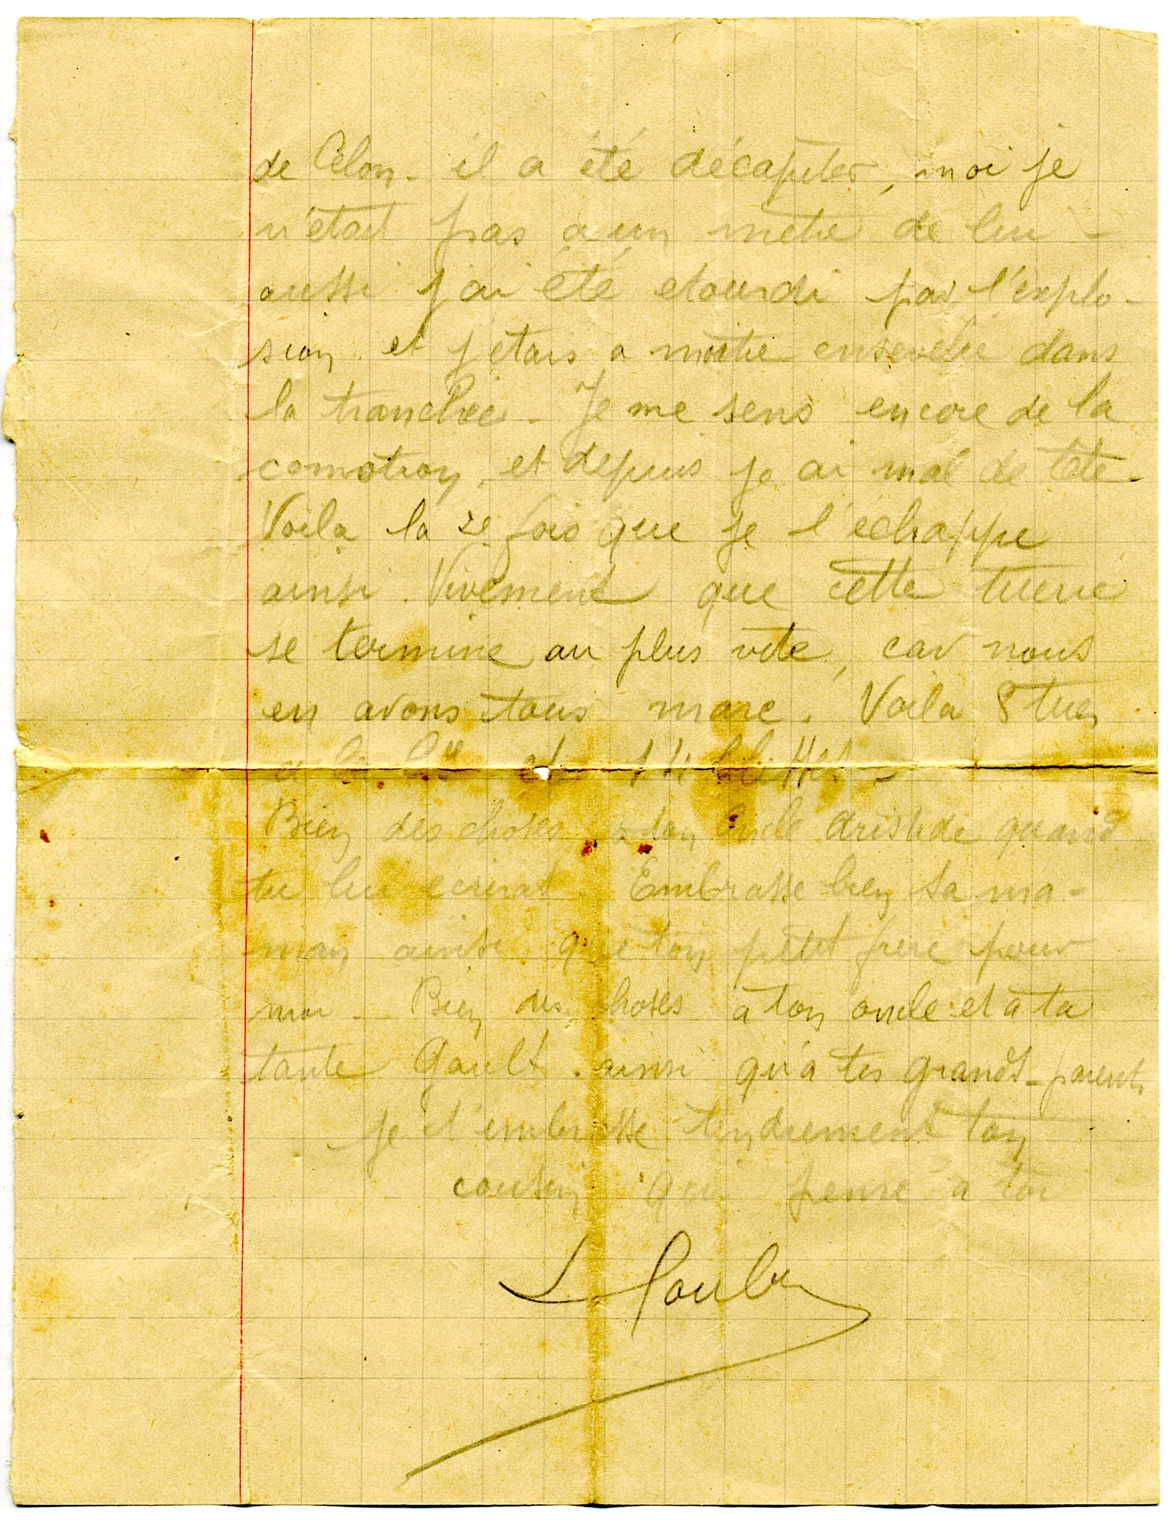 de Célon. il a été décapiter, moi je
n'était pas a un mètre de lui -
aussi j'ai été etourdi par l'explo-
sion et j'etais a moitié ensevelie dans
la tranchée. Je me sens encore de la
comotion, et depuis je ai mal de tête.
Voila la 2e fois que je l'échappe
ainsi. Vivement que cette tuerie
se termine au plus vite, car nous
en avons tous marc. Voila 8 tues
a la Cie et 14 blesses -
Bien des choses a ton oncle Aristide quand
tu lui ecriras. Embrasse bien ta ma-
man ainsi que ton petit frere pour
moi. Bien des choses à ton oncle et à ta
tante Gault. ainsi qu'a tes grands-parents
je t'embrasse tendrement ton
cousin qui pense a toi